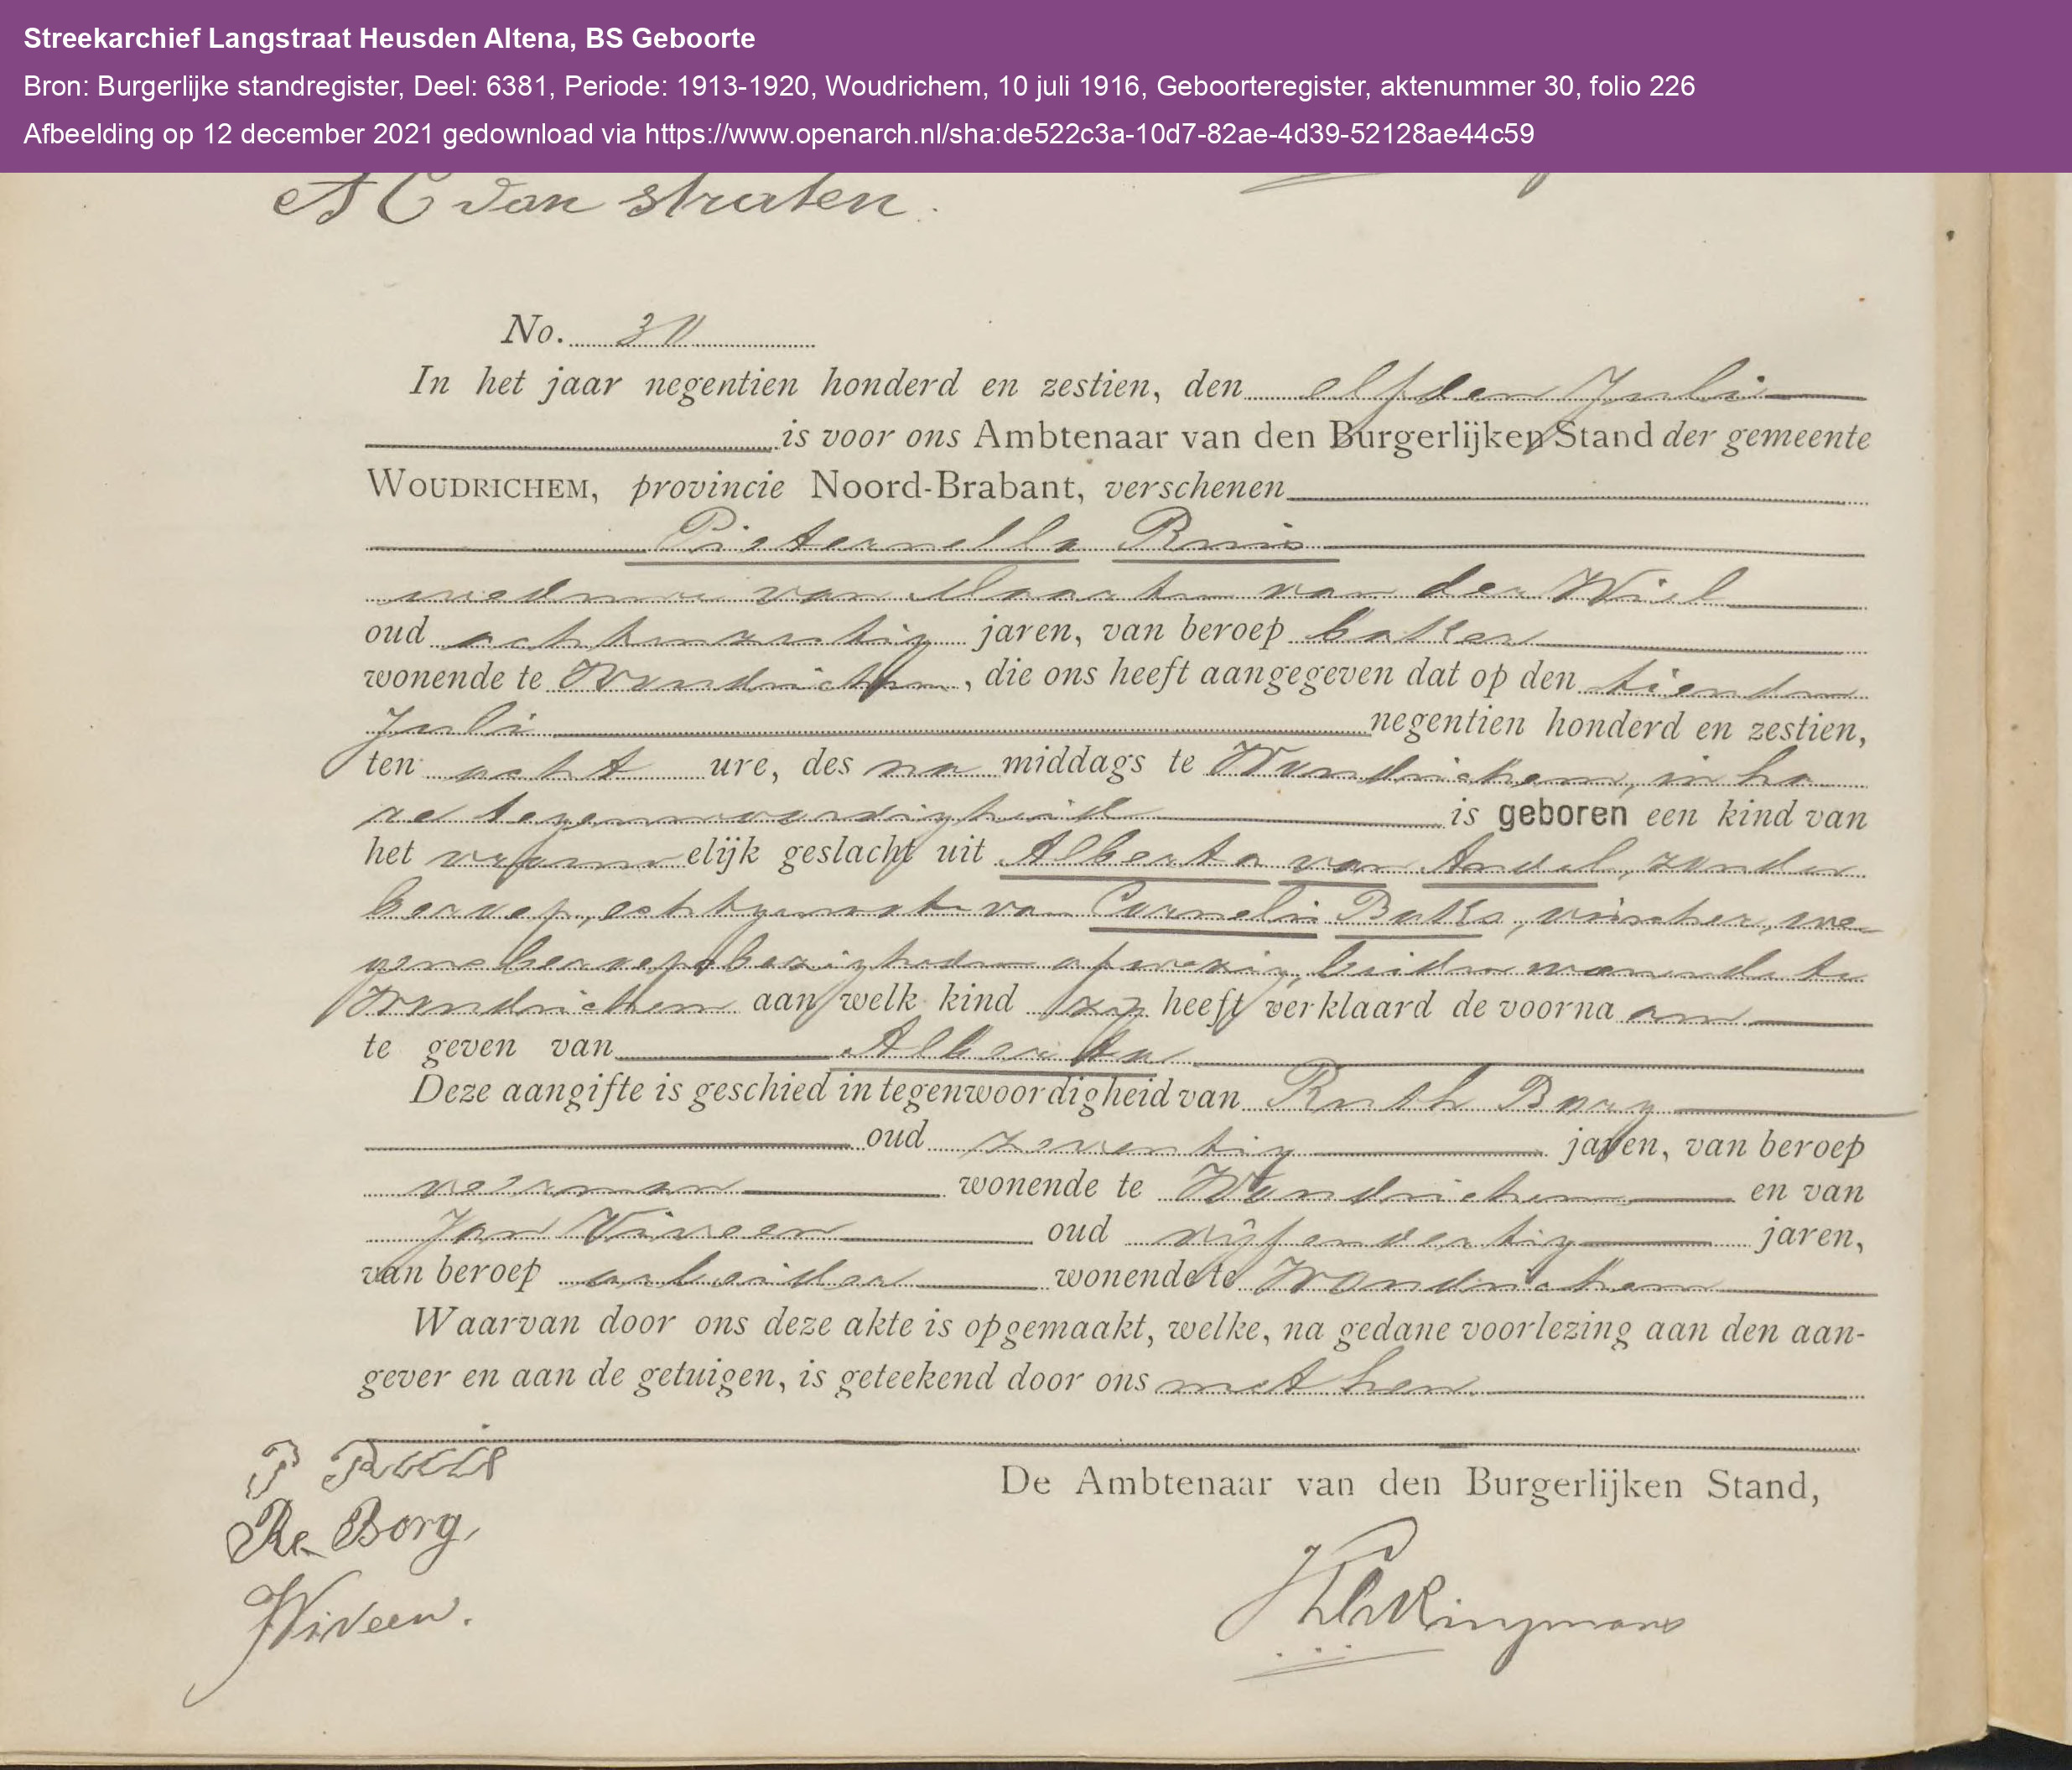 Streekarchief Langstraat Heusden Altena, BS Geboorte
Bron: Burgerlijke standregister, Deel: 6381, Periode: 1913-1920, Woudrichem, 10 juli 1916, Geboorteregister, aktenummer 30, folio 226
Afbeelding op 12 december 2021 gedownload via https://www.openarch.nl/sha:de522c3a-10d7-82ae-4d39-52128ae44c59
A C van straten.
No. 30
In het jaar negentien honderd en zestien, den elfden Juli
is voor ons Ambtenaar van den Burgerlijken Stand der gemeente
WOUDRICHEM, provincie Noord-Brabant, verschenen
Pieternella Ruis
weduwe van Maarten van der Wiel
oud achtenzestig jaren, van beroep baker
wonende te Woudrichem, die ons heeft aangegeven dat op den tienden
Juli negentien honderd en zestien,
ten acht ure, des na middags te Woudrichem, in ha
re tegenwoordigheid is geboren een kind van
het vrouwelijk geslacht uit Alberta van Andel, zonder
beroep, echtgenoote van Cornelis Buks, visscher, we-
gens beroepsbezigheden afwezig, beiden wonende te
Woudrichem aan welk kind zij heeft verklaard de voornaam
te geven van Alberta
Deze aangifte is geschied in tegenwoordigheid van Roth Borg
oud zeventig jaren, van beroep
veerman wonende te Woudrichem en van
Jan Viveen oud vijfenveertig jaren,
van beroep arbeider wonende te Woudrichem
Waarvan door ons deze akte is opgemaakt, welke, na gedane voorlezing aan den aan-
gever en aan de getuigen, is geteekend door ons met hen.
P Ruis
De Ambtenaar van den Burgerlijken Stand,
R. Borg,
J Viveen.